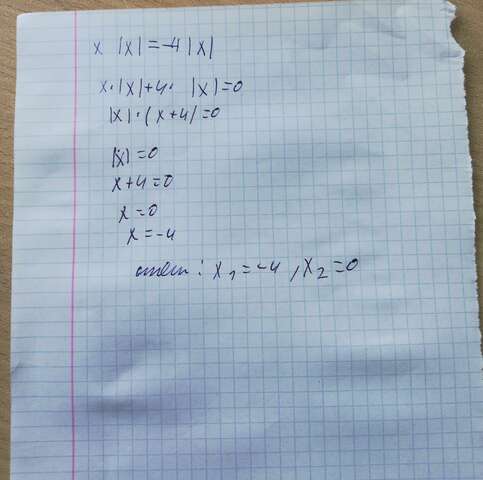 x |x|=-4|x|
x·|x|+4· |x|=0
|x|·(x+4)=0
|x|=0
x+4=0
x=0
x=-4
ответ: x₁=-4, x₂=0